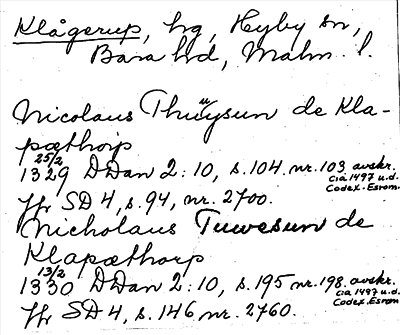 Klågerup, hg, Hyby sn,
Bara hd, Malm. l.
Nicolaus Thuÿsun de Kla-
pæthorp
25/2
1329 DDan 2:10, s.104 nr.103 avskr.
cia 1497 u.d.
Codex. Esrom.
Jfr SD 4, s.94, nr. 2700.
Nicholaus Tuwesun de
Klapæthorp
13/2
1330 DDan 2:10, s.195 nr.198. avskr.
cia 1497 u.d.
Codex. Esrom.
Jfr SD 4, s.146 nr. 2760.